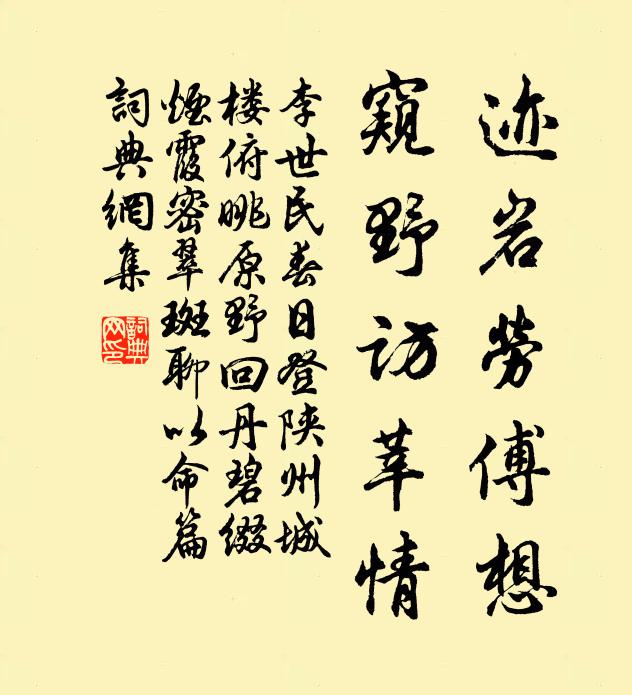 迹岩劳傅想
窥野访莘情
李世民春日登陕州城
楼俯眺原野回丹碧缀
烟霞密翠斑聊以命篇
詞典網集
詞典
网印